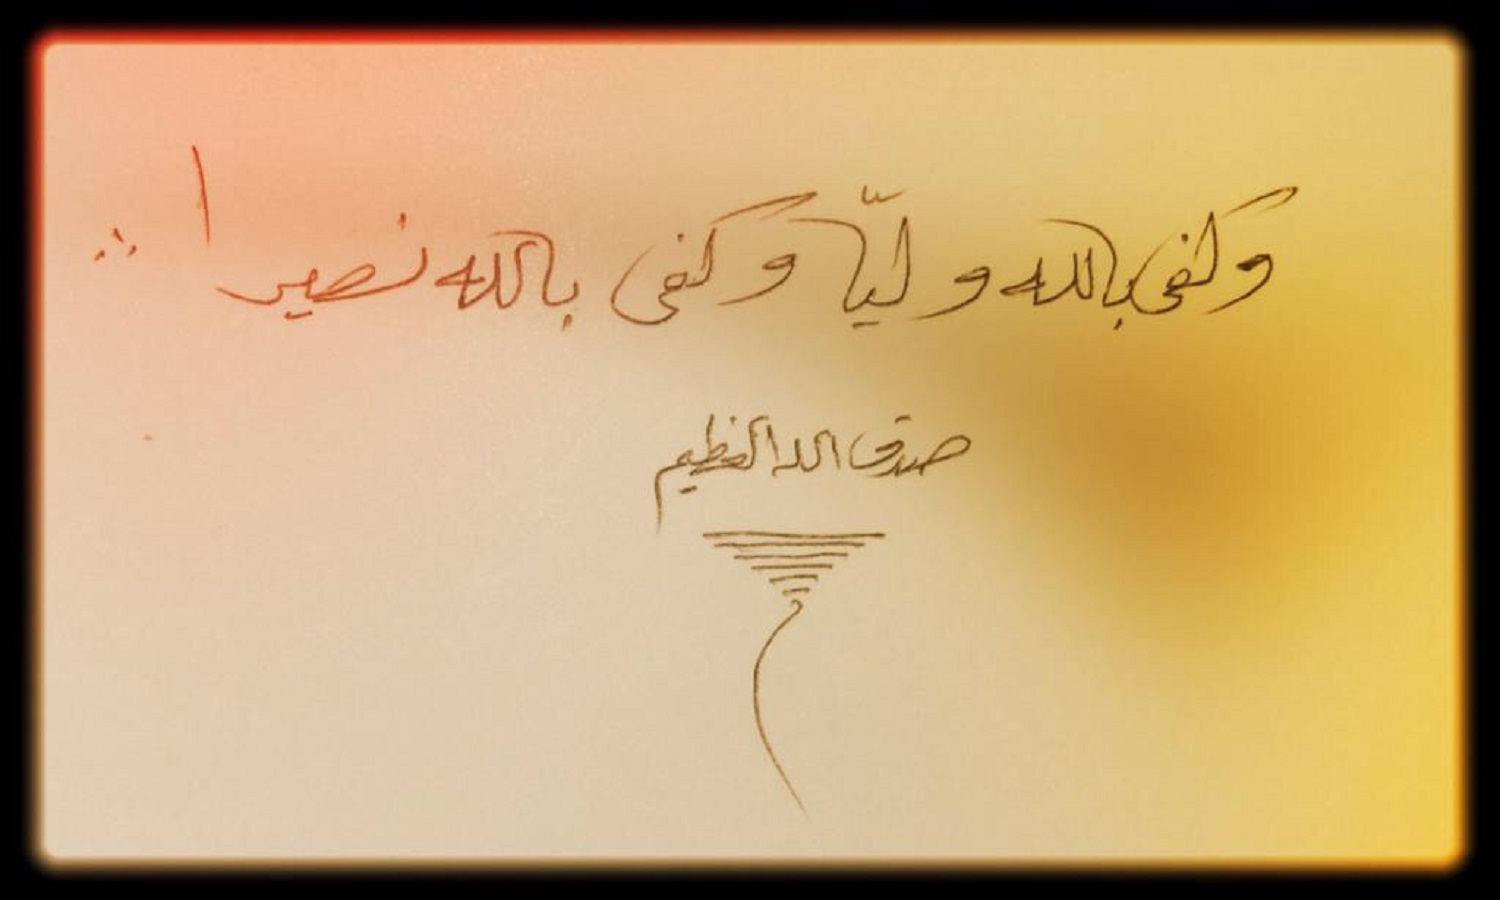 وكفى بالله وليّا وكفى بالله نصيرا
صدق الله العظيم